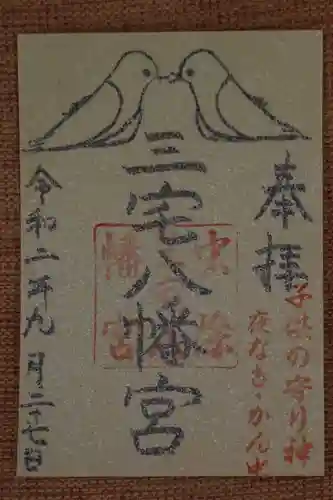 奉拝
子供の守り神
夜なき・かん虫
三宅八幡宮
令和二年九月二十七日